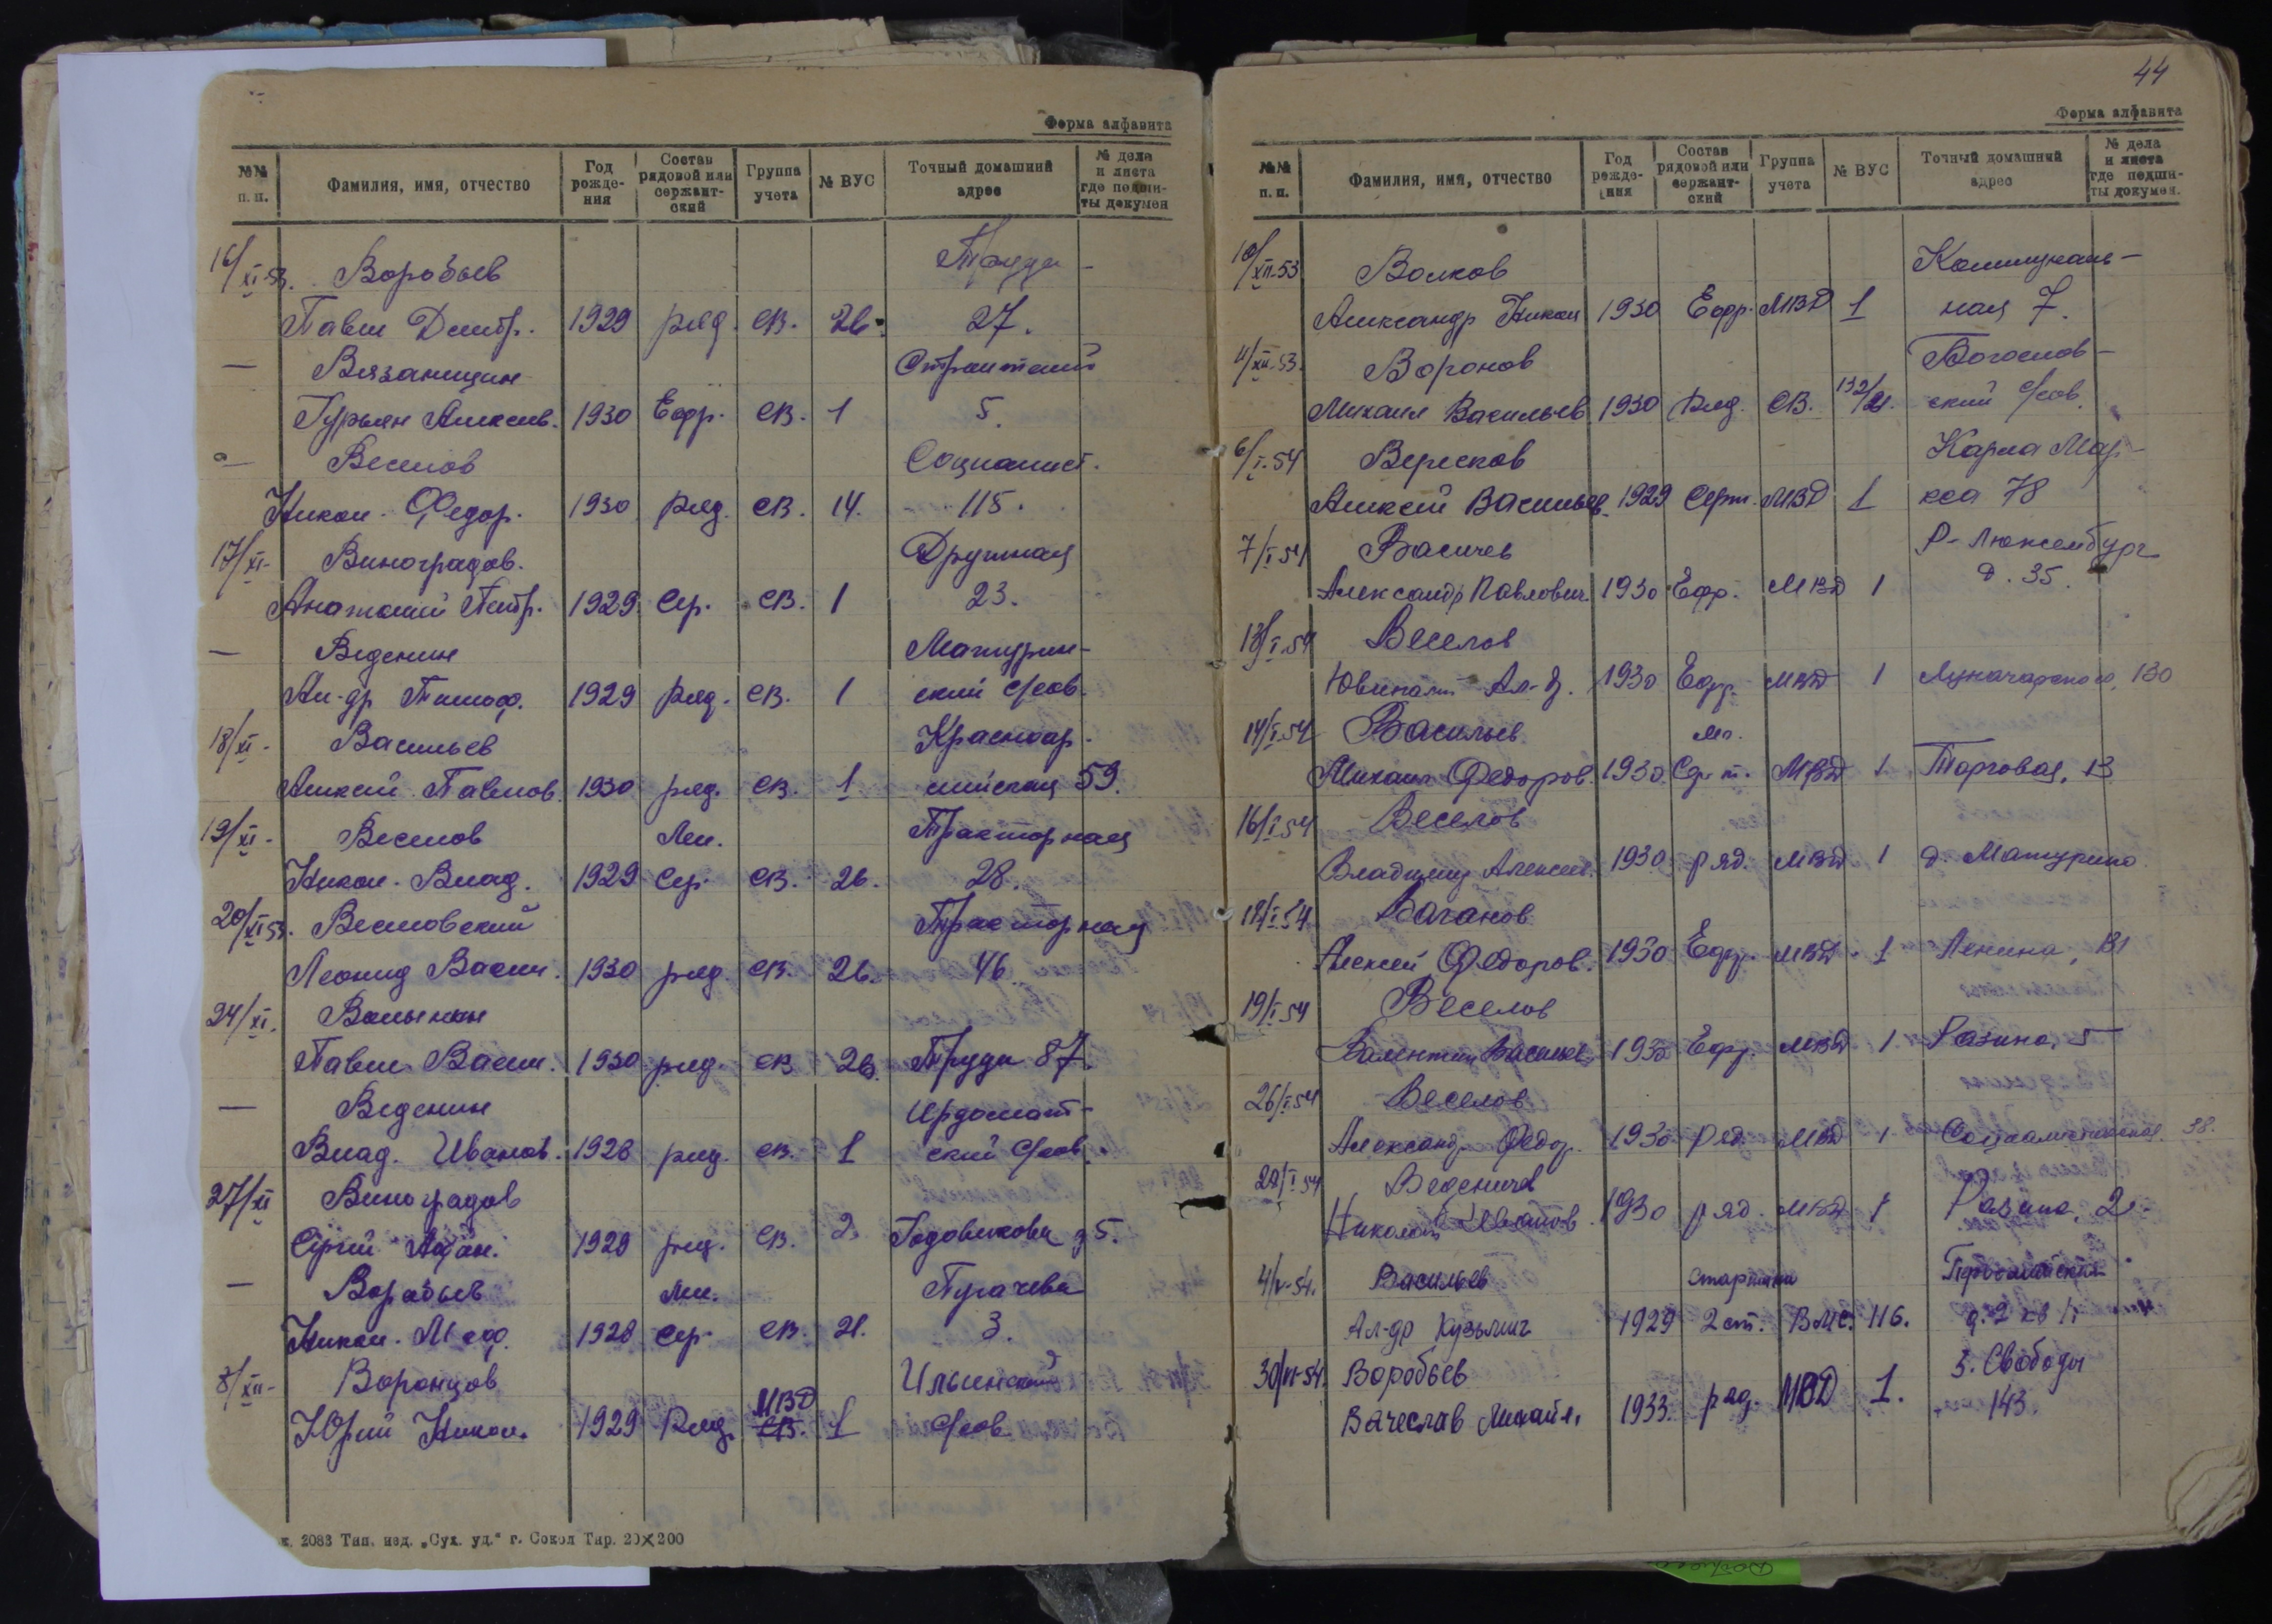 Форма алфавита
№№ п. п. Фамилия, имя, отчество Год рожде-ния Состав рядовой или сержант-ский Группа учета № ВУС Точный домашний адрес № дела и листа где подши-ты докумен
16/XI-53. Воробьев Труда -
Павел Дмитр. 1929 ряд. СВ. 26. 27.
— Вязаницын
Гурьян Алексев. 1930 Ефр. СВ. 1 5.
— Веселов Социалист.
Никол. Федор. 1930 ряд. СВ. 14. 115.
17/XI- Виноградов. Дружная
Анатолий Петр. 1929 Сер. СВ. 1 23.
— Веденин Матурин-
Ал-др Тимоф. 1929 ряд. СВ. 1 ский с/сов.
18/XI- Васильев Красноар.
Алексей Павлов. 1930 ряд. СВ. 1 мейская 59.
19/XI- Веселов Мл. Тракторная
Никол. Влад. 1929 Сер. СВ. 26. 28.
20/XI 53. Веселовский Тракторная
Леонид Васил. 1930 ряд. СВ. 26. 46.
24/XI. Волынкин
Павел Васил. 1930 ряд. СВ 26. Труда 87.
— Веденин Ирдомат-
Влад. Иванов. 1928 ряд. СВ. 1 ский с/сов.
27/XI Виноградов
Сергей 1928 ряд. СВ. Годовикова 5.
— Воробьев Мл. Пугачева
Никол. Меф. 1928 Сер. СВ. 21. 3.
8/XII- Воронцов Ильинский
МВД
Юрий Никол. 1929 Ряд. СВ. 1 с/сов
2083 Тип. изд. „Сух. уд.“ г. Сокол Тир. 20×200
44
Форма алфавита
№№ п. п. Фамилия, имя, отчество Год рожде-ния Состав рядовой или сержант-ский Группа учета № ВУС Точный домашний адрес № дела и листа где подши-ты докумен.
10/XII-53 Волков Коммуналь-
Александр Никол 1930 Ефр. МВД 1 ная 7.
11/XII.53. Воронов Богослов-
Михаил Васильев 1930 Ряд. СВ. 132/21. ский с/сов.
6/I-54 Вересков Карла Мар-
Алексей Васильев. 1929 Серж. МВД 1 кса 78
7/I 54 Васичев Р-Люксембург
Александр Павлович 1930 Ефр. МВД 1 д. 35.
13/I.54 Веселов
Ювиналий Ал-д. 1930 Ефр. МВД 1 Луначарского, 130
14/I.54 Васильев Мл.
Михаил Федоров. 1930 С-р-т. МВД 1 Торговая, 13
16/I 54 Веселов
Владимир Алексеев. 1930 ряд. МВД 1 д. Матурино
18/I 54 Ваганов
Алексей Федоров. 1930 Ефр. МВД 1 Ленина, 131
19/I 54 Веселов
Валентин Васильев 1930 Ефр. МВД 1 Разина, 5
26/I 54 Веселов
Александр Федор. 1930 ряд. МВД 1 Социалистическая 38.
28/I 54 Веденичев
Николай Иванов 1930 ряд. МВД 1 Разина, 2
4/V-54. Васильев старшина Первомайская
Ал-др Кузьмич 1929 2 ст. ВМС. 116. д. 2 кв 1.
30/VI-54. Воробьев З. Свободы
Вачеслав Михайл. 1933. ряд. МВД 1. 143.